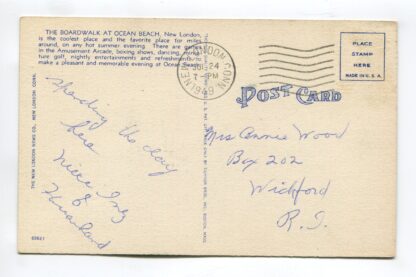 THE BOARDWALK AT OCEAN BEACH, New London,
is the coolest place and the favorite place for miles
around, on any hot summer evening. There are games
in the Amusement Arcade, boxing shows, dancing, minia-
ture golf, nightly entertainments and refreshments to
make a pleasant and memorable evening at Ocean Beach.
LONDON CONN.
24
7-PM
PLACE
STAMP
HERE
MADE IN U.S.A.
POST CARD
THE NEW LONDON NEWS CO., NEW LONDON, CONN.
Spending the day
here
Niece
&
Husband
Mrs Annie Wood
Box 202
Wickford
R. I.
63621